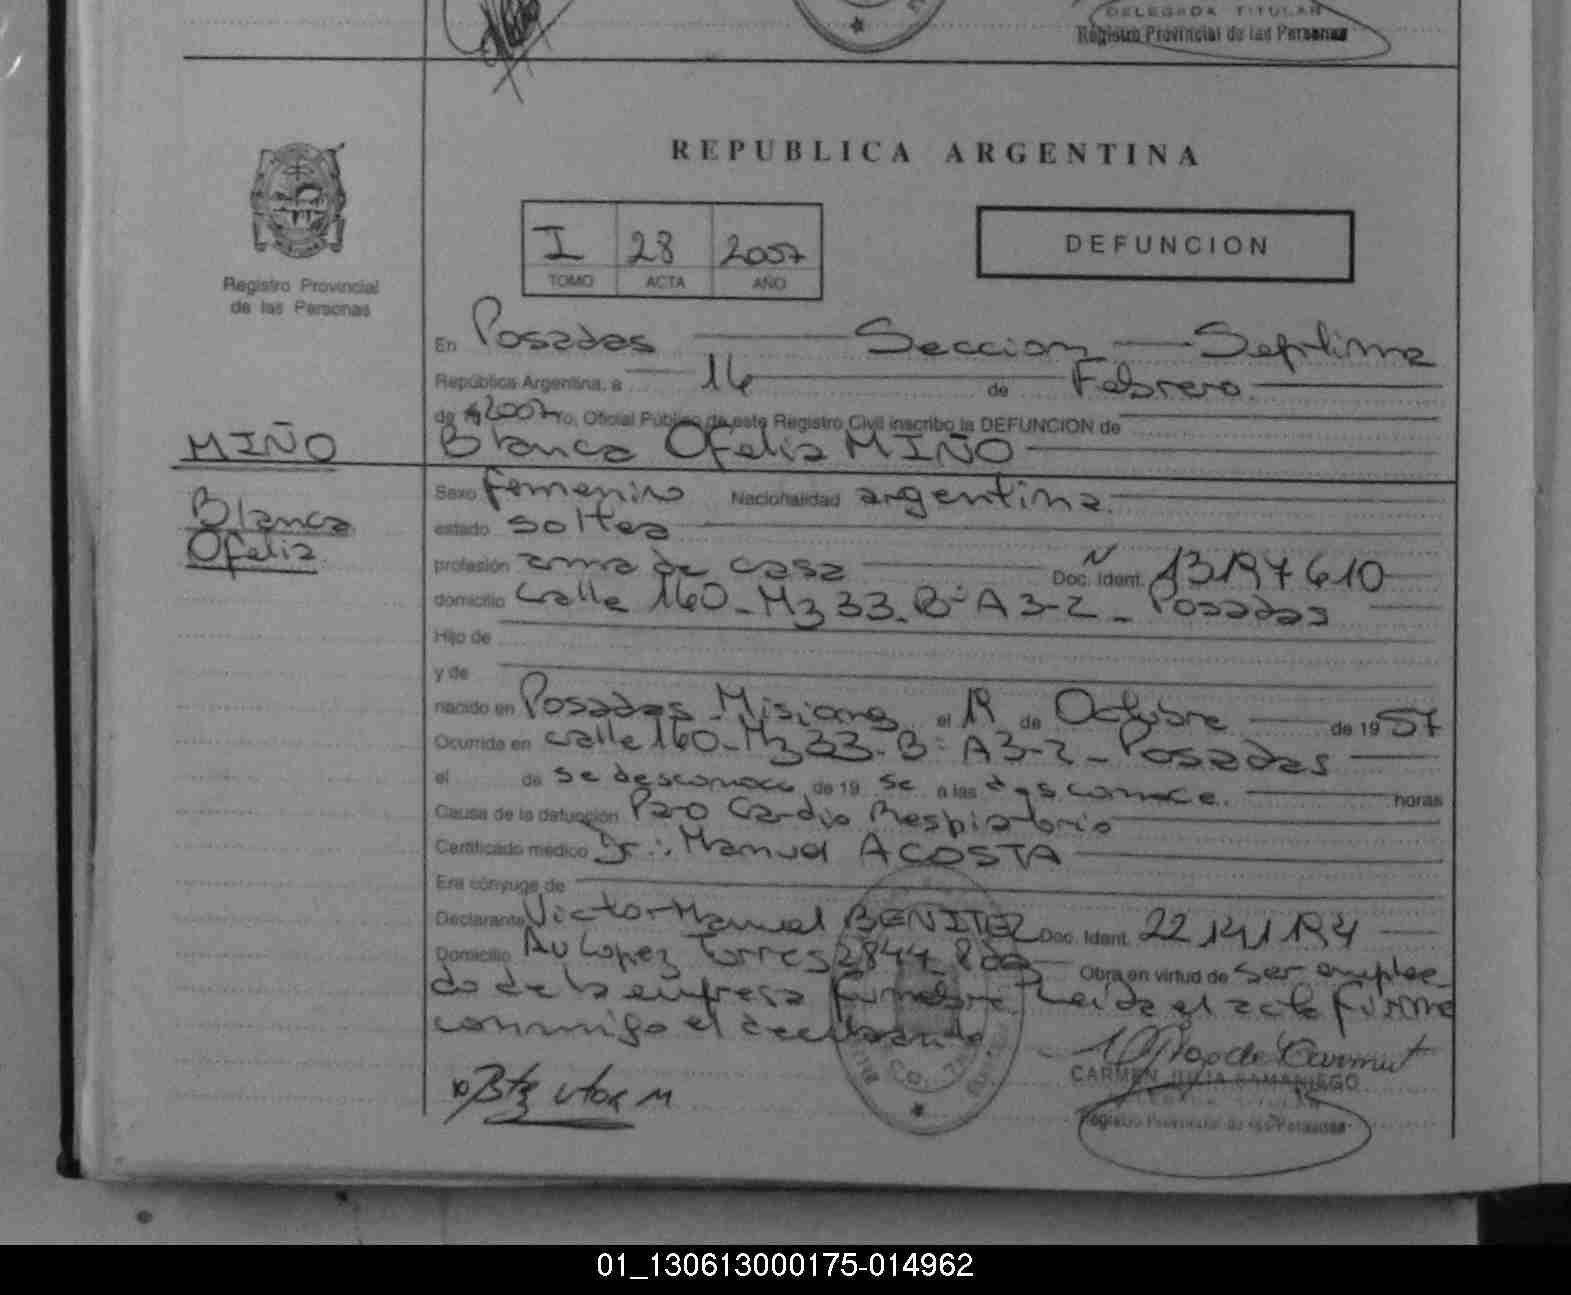 DELEGADA TITULAR
Registro Provincial de las Personas
REPUBLICA ARGENTINA
I 28 2007
TOMO ACTA AÑO
DEFUNCION
Registro Provincial
de las Personas
En Posadas Seccion Septima
República Argentina, a 14 de Febrero
de 2007 yo, Oficial Público de este Registro Civil inscribo la DEFUNCION de
MIÑO
Blanca Ofelia MIÑO
Blanca
Ofelia
Sexo femenino Nacionalidad argentina
estado soltea
profesión ama de casa Doc. Ident. N 13197610
domicilio calle 160 - Mz 33 - B° A3-2 - Posadas
Hijo de
y de
nacido en Posadas Misiones el 19 de Octubre de 1957
Ocurrida en calle 160 - Mz 33 - B° A3-2 - Posadas
el de se desconoce de 19 se a las desconoce horas
Causa de la defunción Paro Cardio Respiratorio
Certificado médico Dr. Manuel ACOSTA
Era cónyuge de
Declarante Victor Manuel BENITEZ Doc. Ident. 22.141.194
Domicilio Av Lopez Torres 2844 Obra en virtud de ser emplea
do de la empresa funebre Leida el acta firma
conmigo el declarante
CARMEN JULIA SAMANIEGO
Registro Provincial de las Personas
01_130613000175-014962